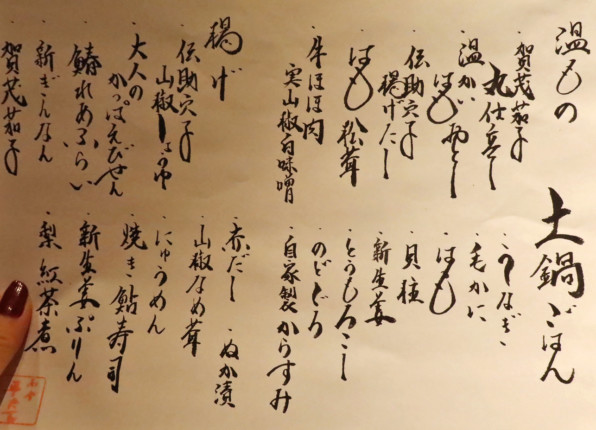 温もの
・賀茂茄子
・温かい
はも おとし
・伝助穴子
揚げだし
・はも 松茸
・牛ほほ肉
実山椒白味噌
揚げ
・伝助穴子
山椒しょうゆ
・大人の
かっぱえびせん
・鰆れあふらい
・新ぎんなん
・賀茂茄子
土鍋ごはん
・うなぎ
・毛かに
・はも
・貝柱
・新生姜
・とうもろこし
・のどぐろ
・自家製からすみ
・赤だし ・ぬか漬
・山椒なめ茸
・にゅうめん
・焼き鮎寿司
・新生姜ぷりん
・梨 紅茶煮